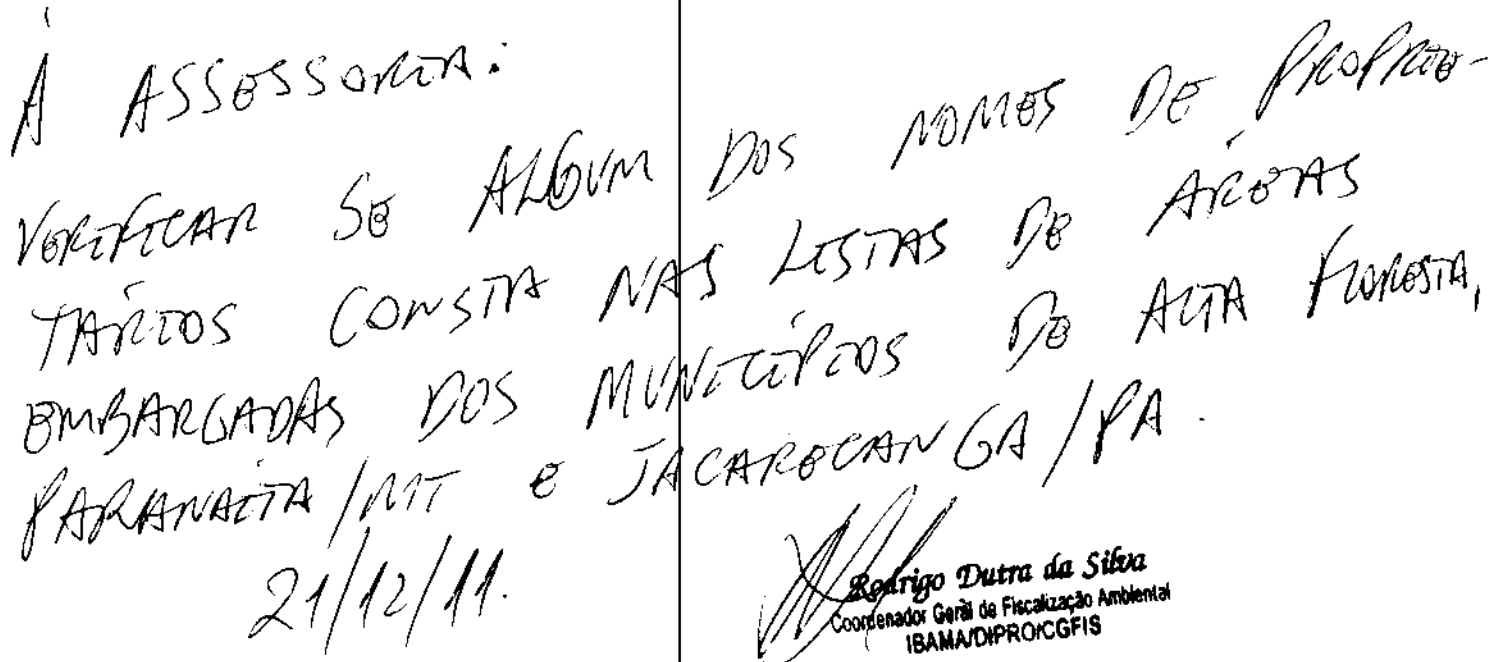 À ASSESSORIA:
VERIFICAR SE ALGUM DOS NOMES DE PROPRIE-
TÁRIOS CONSTA NAS LISTAS DE ÁREAS
EMBARGADAS DOS MUNICÍPIOS DE ALTA FLORESTA,
PARANAÍTA/MT E JACAREACANGA/PA.
21/12/11.
Rodrigo Dutra da Silva
Coordenador Geral de Fiscalização Ambiental
IBAMA/DIPRO/CGFIS